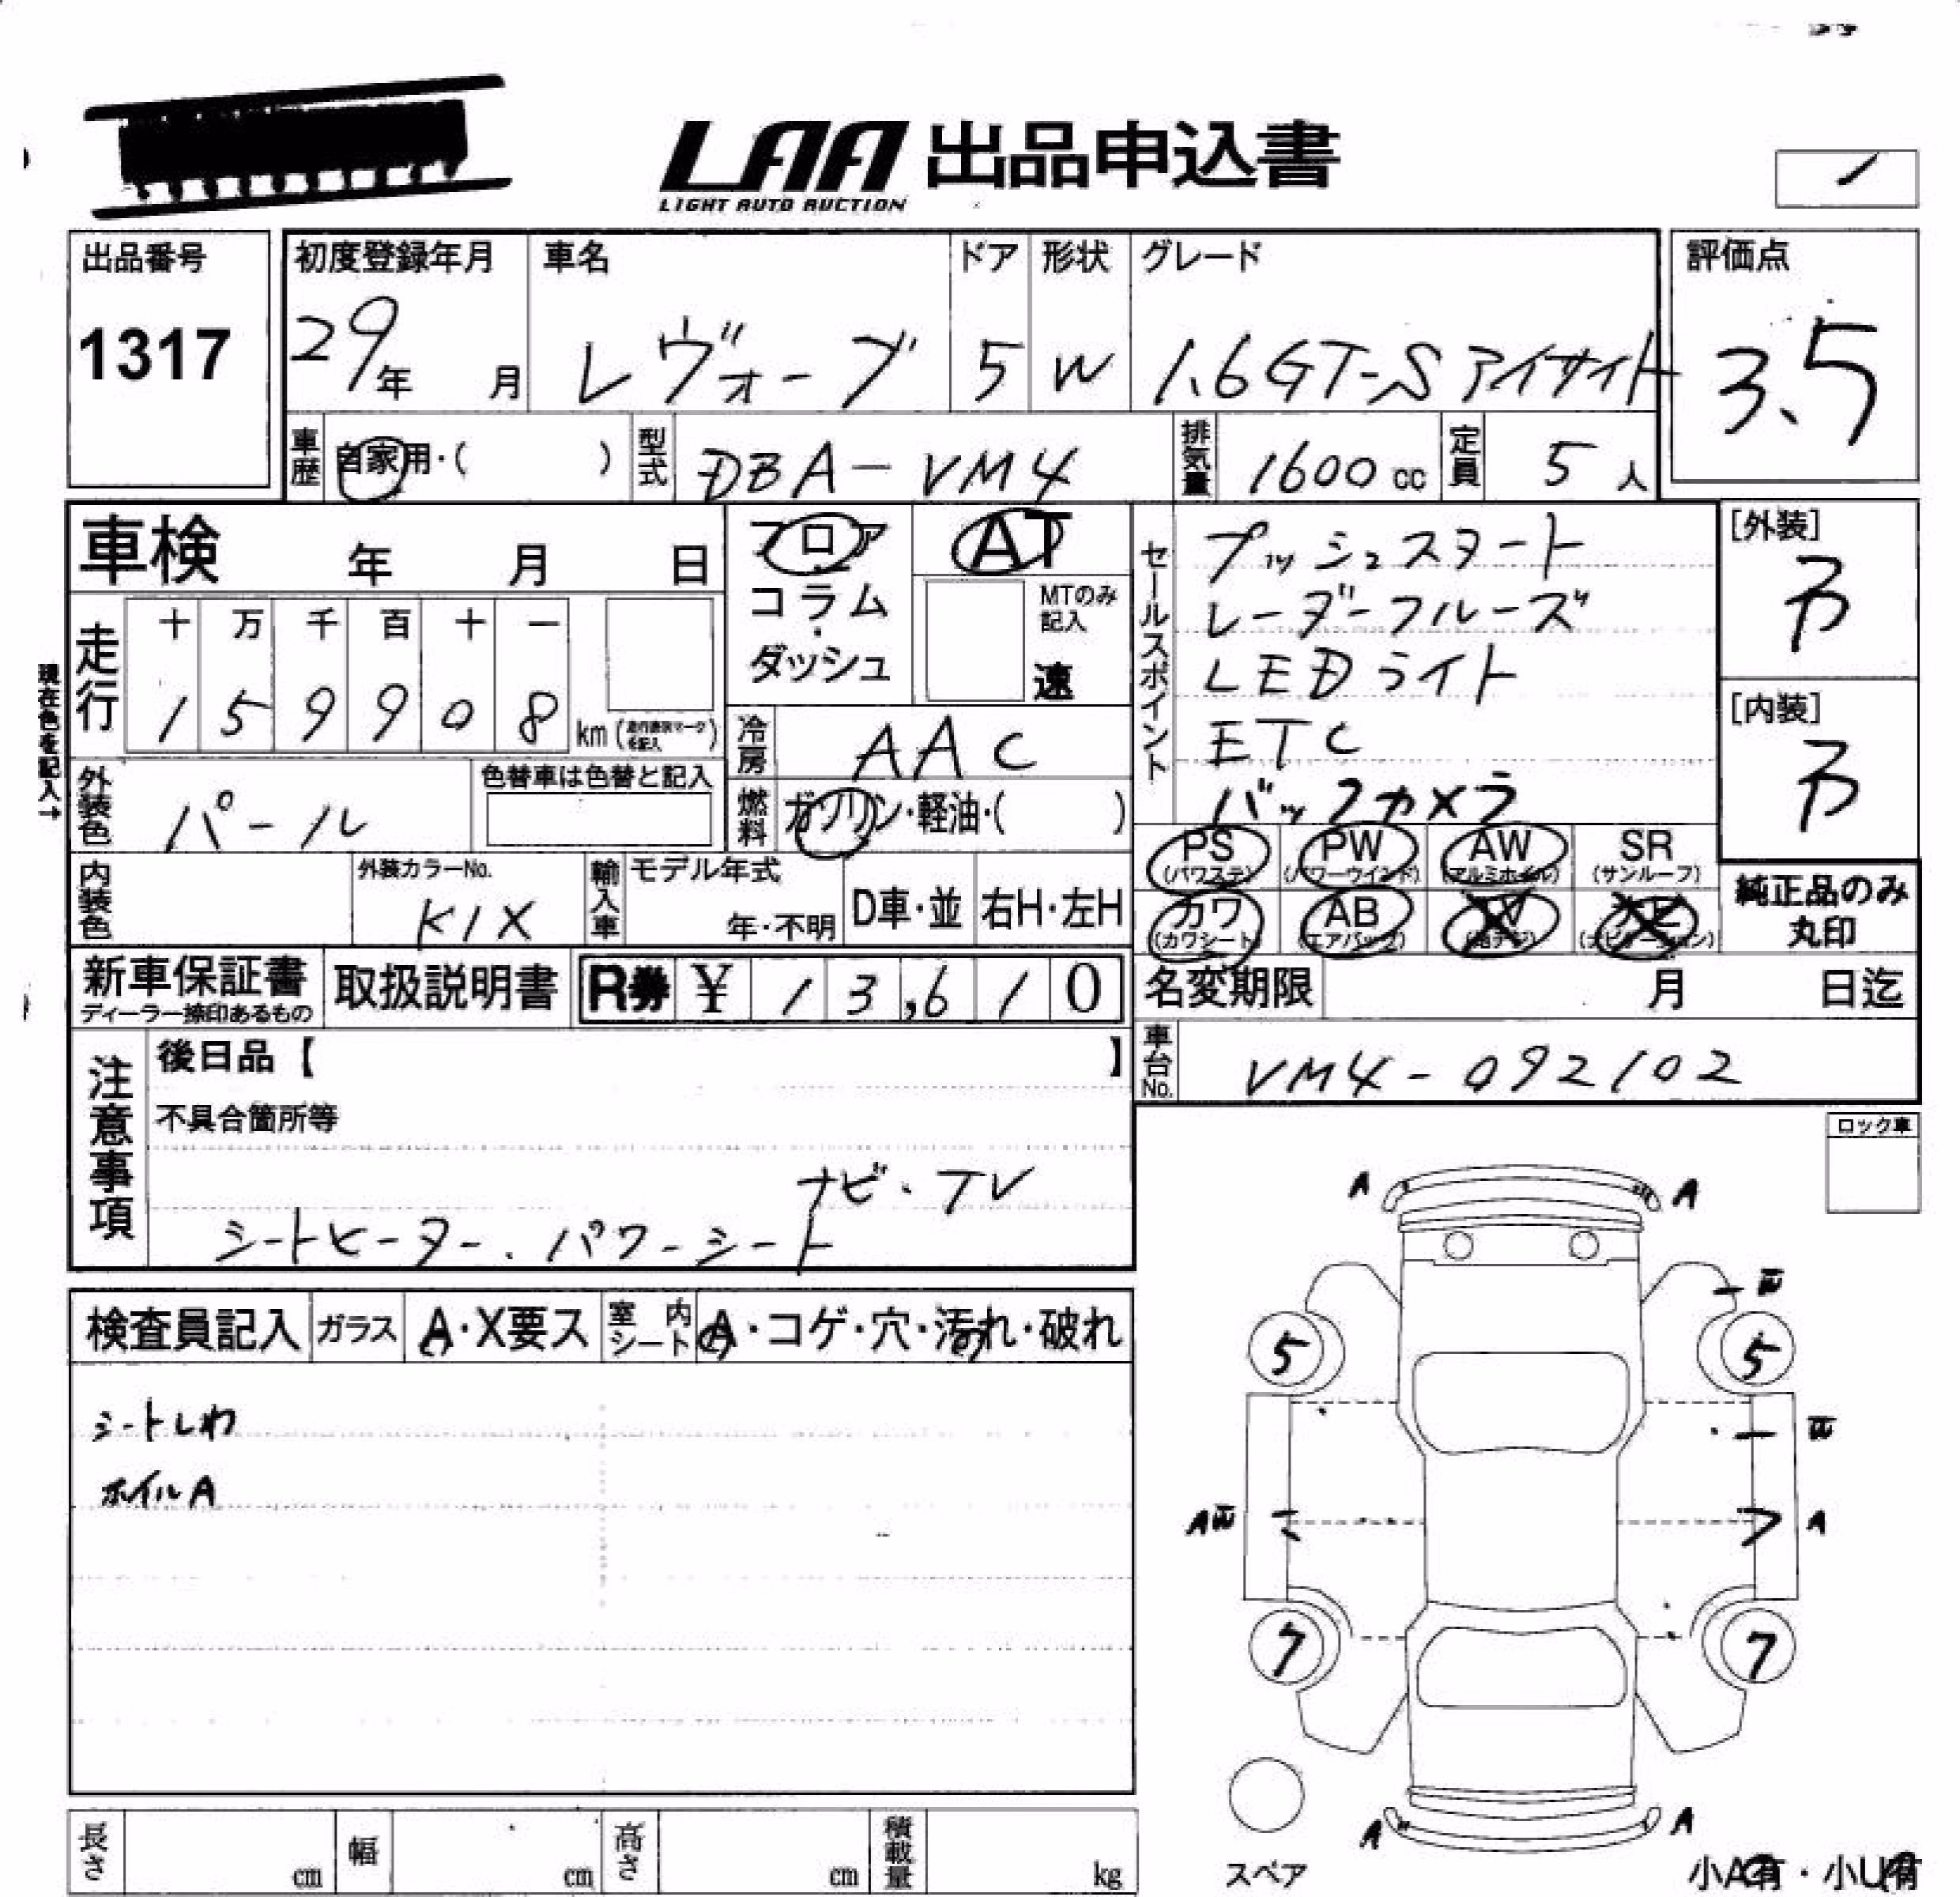 LAA 出品申込書
LIGHT AUTO AUCTION
出品番号 1317
初度登録年月 29年 月
車名 レヴォーグ
ドア 5
形状 W
グレード 1.6GT-S アイサイト
評価点 3.5
車歴 自家用・( )
型式 DBA-VM4
排気量 1600cc
定員 5人
車検 年 月 日
フロア・コラム・ダッシュ
AT
MTのみ記入 速
セールスポイント
プッシュスタート
レーダークルーズ
LEDライト
ETC
バックカメラ
[外装]
[内装]
現在色を記入→
走行 十 万 千 百 十 一
1 5 9 9 0 8 km
冷房 AAC
燃料 ガソリン・軽油・( )
外装色 パール
色替車は色替と記入
内装色
外装カラーNo. K1X
輸入車 モデル年式 年・不明
D車・並 右H・左H
PS (パワステ) PW (パワーウインド) AW (アルミホイル) SR (サンルーフ)
カワ (カワシート) AB (エアバッグ) TV (地デジ) ナビ (ナビゲーション)
純正品のみ丸印
新車保証書 ディーラー捺印あるもの
取扱説明書
R券 ¥ 13,610
名変期限 月 日迄
車台No. VM4-092102
注意事項
後日品【 】
不具合箇所等
ナビ・TV
シートヒーター・パワーシート
ロック車
検査員記入 ガラス A・X要ス 室内シート A・コゲ・穴・汚れ・破れ
シートしわ
ホイルA
A A
5 5
A A
7 7
A A
スペア
小A有・小U有
長さ cm 幅 cm 高さ cm 積載量 kg